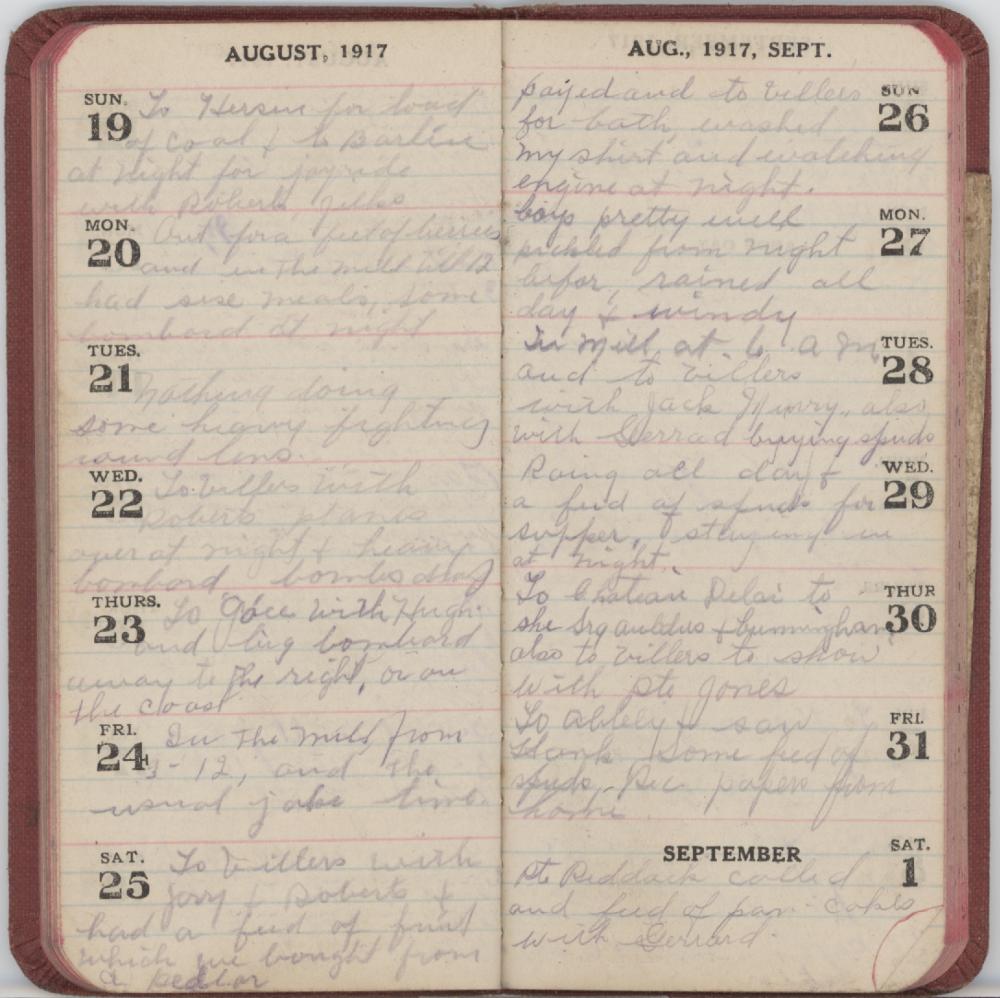 AUGUST, 1917
SUN.
19
To Hersin for load
of Coal & to Barlin
at night for joyride
with Roberts
MON.
20
Out for a feed of berries
and in the mill till 12
had sise meals, some
bombard at night
TUES.
21
Nothing doing
some heavy fighting
round lens.
WED.
22
To Villers with
Roberts planes
over at night & heavy
bombard bombs
THURS.
23
To with Hugh
and big bombard
away to the right, or on
the coast
FRI.
24
In the mill from
- 12, and the
usual jake time.
SAT.
25
To Villers with
Jerry & Roberts &
had a feed of fruit
which we bought from
a pedlar
AUG., 1917, SEPT.
SUN
26
payed and to Villers
for bath, washed
my shirt and watching
engine at night.
MON.
27
boys pretty well
pickled from night
befor, rained all
day & windy
TUES.
28
In Mill at 6 a m
and to Villers
with Jack also
with Gerrad buying spuds
WED.
29
Raing all day &
a feed of spuds for
supper, staying in
at night.
THUR
30
To Chateau Delai to
she & Cunningham
also to Villers to show
with pte Jones
FRI.
31
To & saw
Hank Some feed of
spuds, Rec papers from
home
SEPTEMBER
SAT.
1
Pte Reddack called
and feed of pan-cakes
with Gerrard.